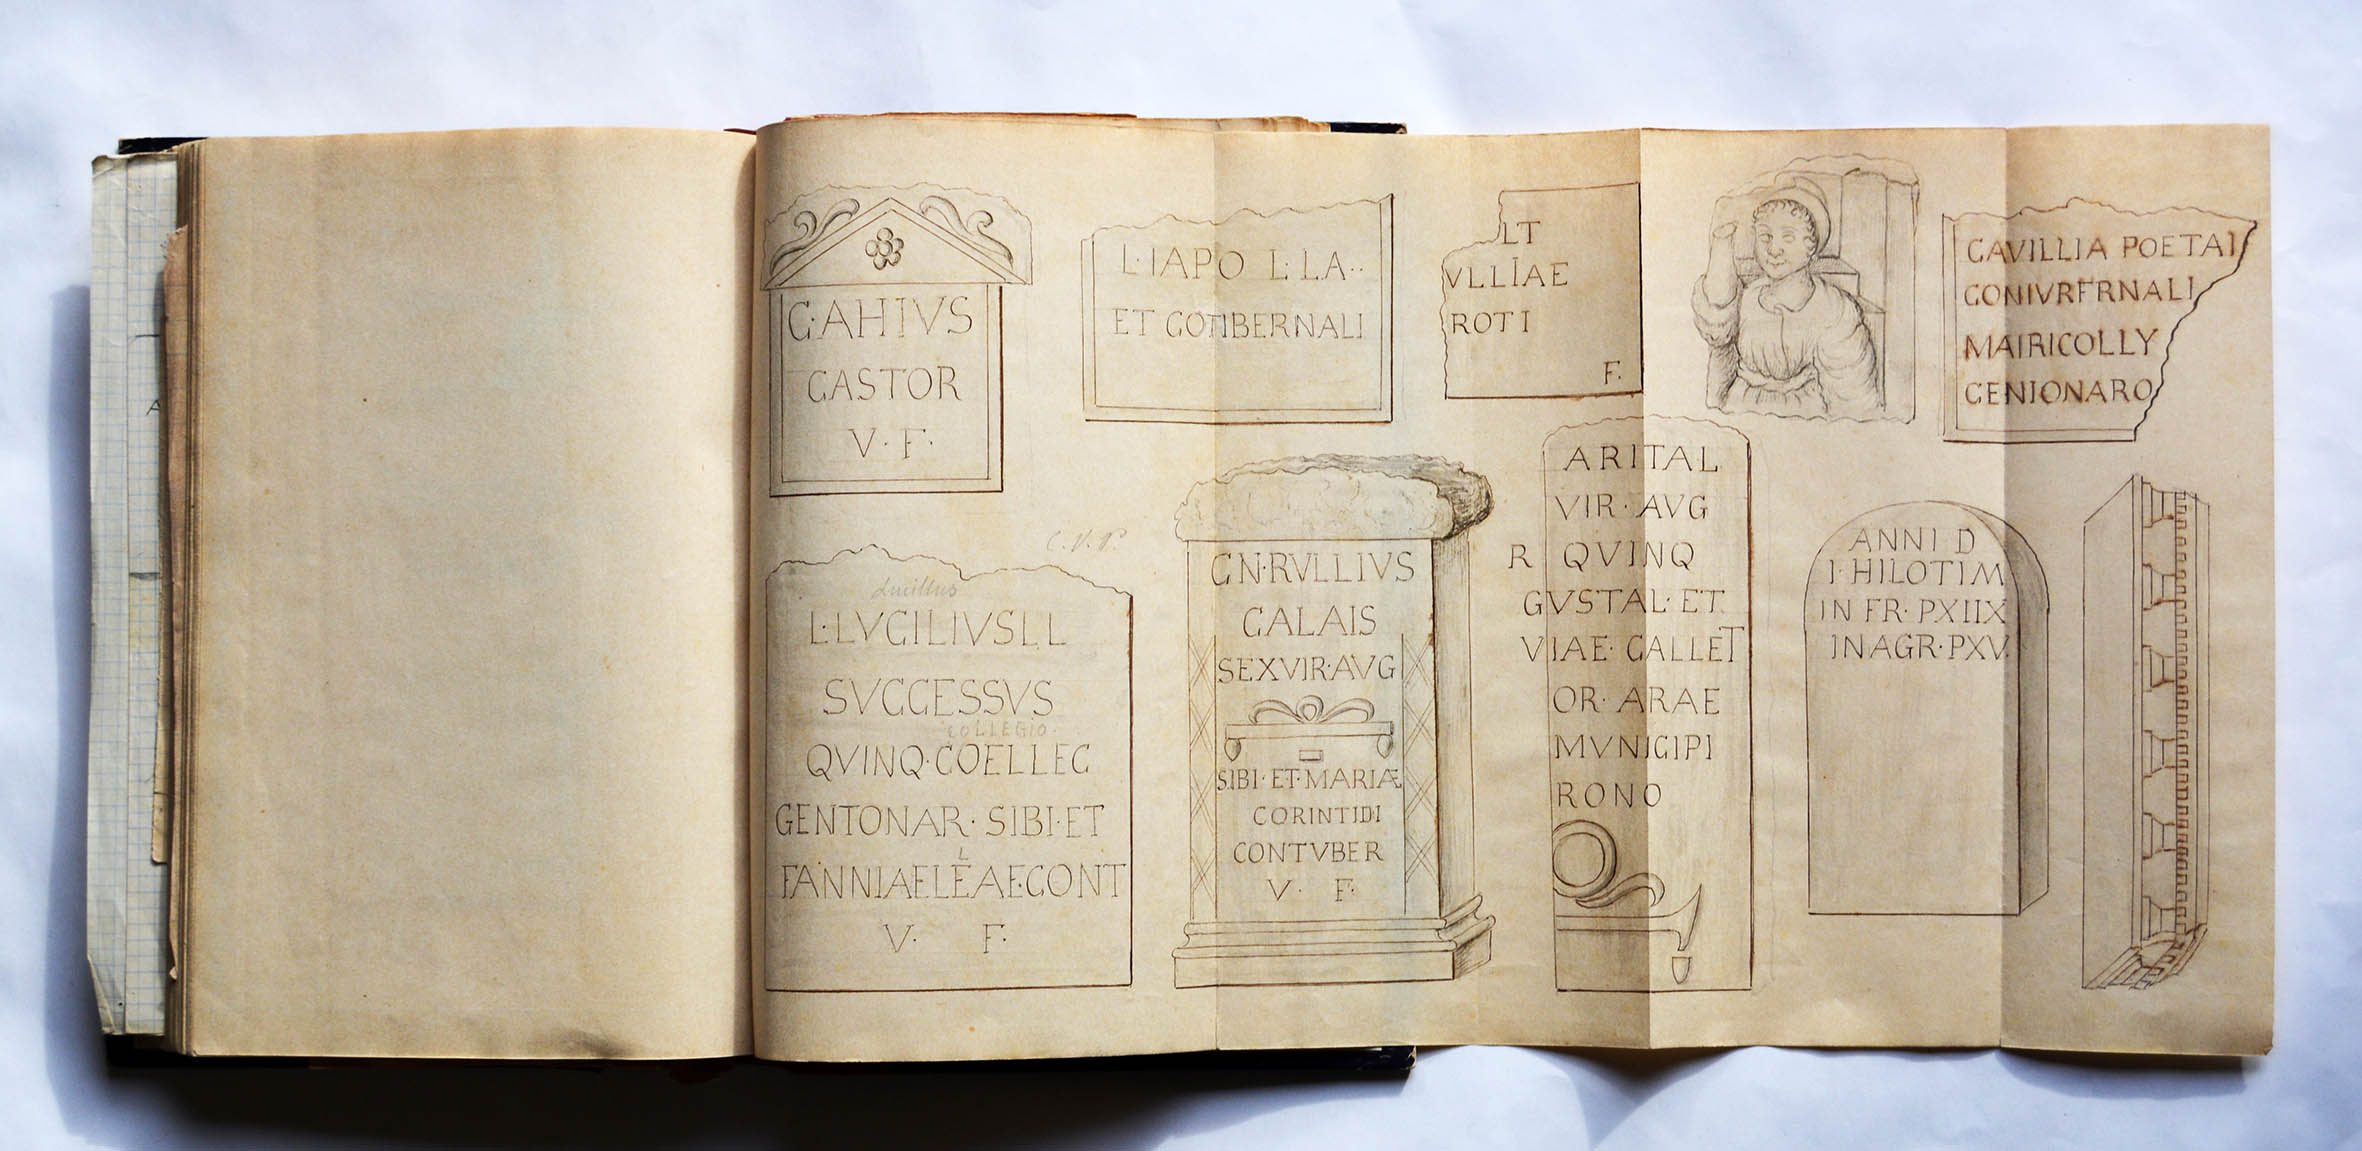 C·AHIVS
CASTOR
V·F·
L·IAPO L·LA··
ET COTIBERNALI
LT
VLLIAE
ROTI
F.
CAVILLIA POETAI
CONIVRFRNALI
MAIRICOLLY
CENIONARO
C.V.P.
Lucillus
L·LVCILIVSLL
SVCCESSVS
COLLEGIO·
QVINQ·COELLEC
CENTONAR·SIBI·ET
L
FANNIAELEAE·CONT
V· F·
CN·RVLLIVS
CALAIS
SEXVIR·AVG
SIBI·ET·MARIÆ
CORINTIDI
CONTVBER
V· F·
ARITAL
VIR·AVG
R QVINQ
GVSTAL·ET
VIAE·CALLET
OR·ARAE
MVNICIPI
RONO
ANNI D
I·HILOTIM
IN FR·PXIIX
INAGR·PXV.
A